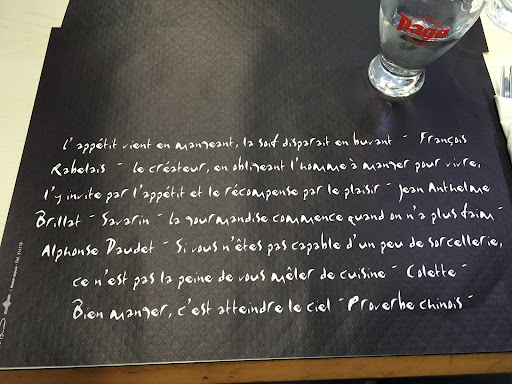 Pago
L'appétit vient en mangeant, la soif disparait en buvant - François
Rabelais - Le créateur, en obligeant l'homme à manger pour vivre,
l'y invite par l'appétit et le récompense par le plaisir - Jean Anthelme
Brillat - Savarin - La gourmandise commence quand on n'a plus faim -
Alphonse Daudet - Si vous n'êtes pas capable d'un peu de sorcellerie,
ce n'est pas la peine de vous mêler de cuisine - Colette -
Bien manger, c'est atteindre le ciel - Proverbe chinois -